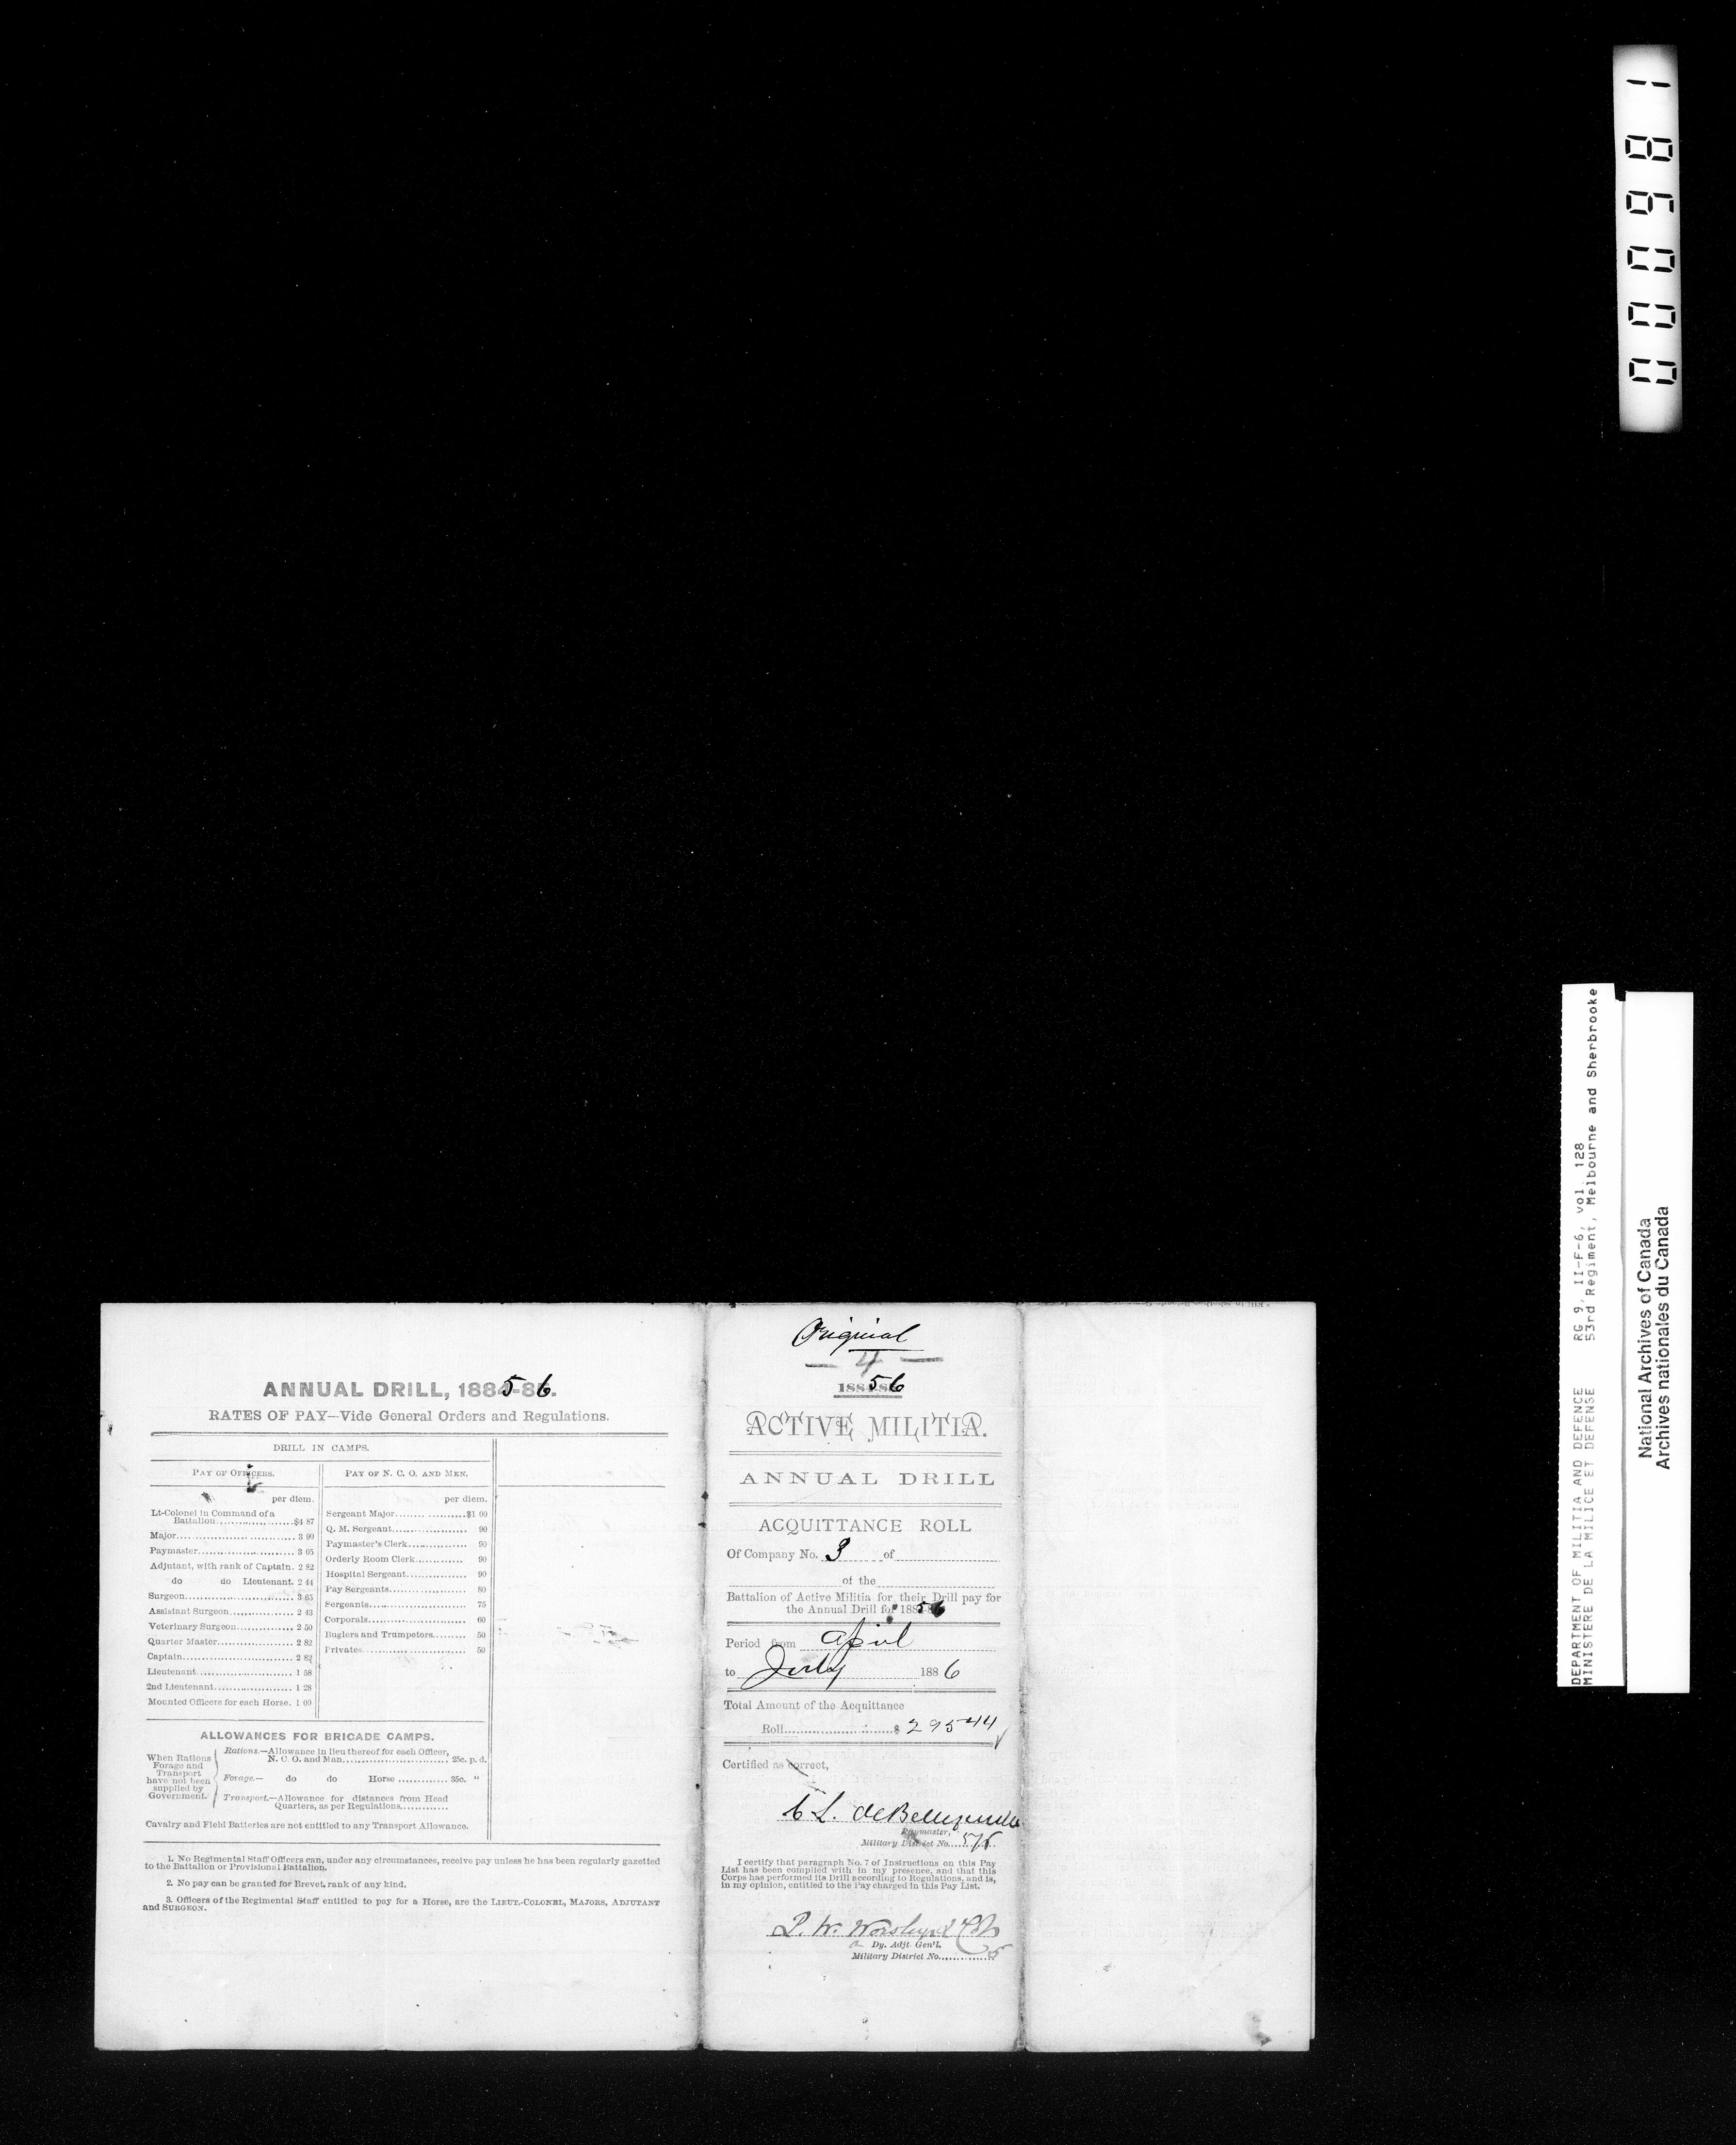 000981
DEPARTMENT OF MILITIA AND DEFENCE RG 9, II-F-6, vol. 128
MINISTERE DE LA MILICE ET DEFENSE 53rd Regiment, Melbourne and Sherbrooke
National Archives of Canada
Archives nationales du Canada
ANNUAL DRILL, 1885-86.
RATES OF PAY—Vide General Orders and Regulations.
DRILL IN CAMPS.
PAY OF OFFICERS.
per diem.
Lt-Colonel in Command of a
Battalion..............$4 87
Major.............. 3 90
Paymaster.............. 3 05
Adjutant, with rank of Captain. 2 82
do do Lieutenant. 2 44
Surgeon.............. 3 65
Assistant Surgeon.............. 2 43
Veterinary Surgeon.............. 2 50
Quarter Master.............. 2 82
Captain.............. 2 82
Lieutenant.............. 1 58
2nd Lieutenant.............. 1 28
Mounted Officers for each Horse. 1 00
PAY OF N. C. O. AND MEN.
per diem.
Sergeant Major..............$1 00
Q. M. Sergeant.............. 90
Paymaster's Clerk.............. 90
Orderly Room Clerk.............. 90
Hospital Sergeant.............. 90
Pay Sergeants.............. 80
Sergeants.............. 75
Corporals.............. 60
Buglers and Trumpeters........ 50
Privates.............. 50
ALLOWANCES FOR BRIGADE CAMPS.
When Rations
Forage and
Transport
have not been
supplied by
Government.
Rations.—Allowance in lieu thereof for each Officer,
N. C. O. and Man.............. 25c. p. d.
Forage.— do do Horse .............. 35c. "
Transport.—Allowance for distances from Head
Quarters, as per Regulations..............
Cavalry and Field Batteries are not entitled to any Transport Allowance.
1. No Regimental Staff Officers can, under any circumstances, receive pay unless he has been regularly gazetted
to the Battalion or Provisional Battalion.
2. No pay can be granted for Brevet rank of any kind.
3. Officers of the Regimental Staff entitled to pay for a Horse, are the LIEUT.-COLONEL, MAJORS, ADJUTANT
and SURGEON.
Original
— 4 —
1885-86
ACTIVE MILITIA.
ANNUAL DRILL
ACQUITTANCE ROLL
Of Company No. 3 of
of the
Battalion of Active Militia for their Drill pay for
the Annual Drill for 1885-6
Period from April
to July 1886
Total Amount of the Acquittance
Roll..............$ 295 44
Certified as correct,
Paymaster,
Military District No. 5/6
I certify that paragraph No. 7 of Instructions on this Pay
List has been complied with in my presence, and that this
Corps has performed its Drill according to Regulations, and is,
in my opinion, entitled to the Pay charged in this Pay List.
Dy. Adjt. Gen'l.
Military District No. 5